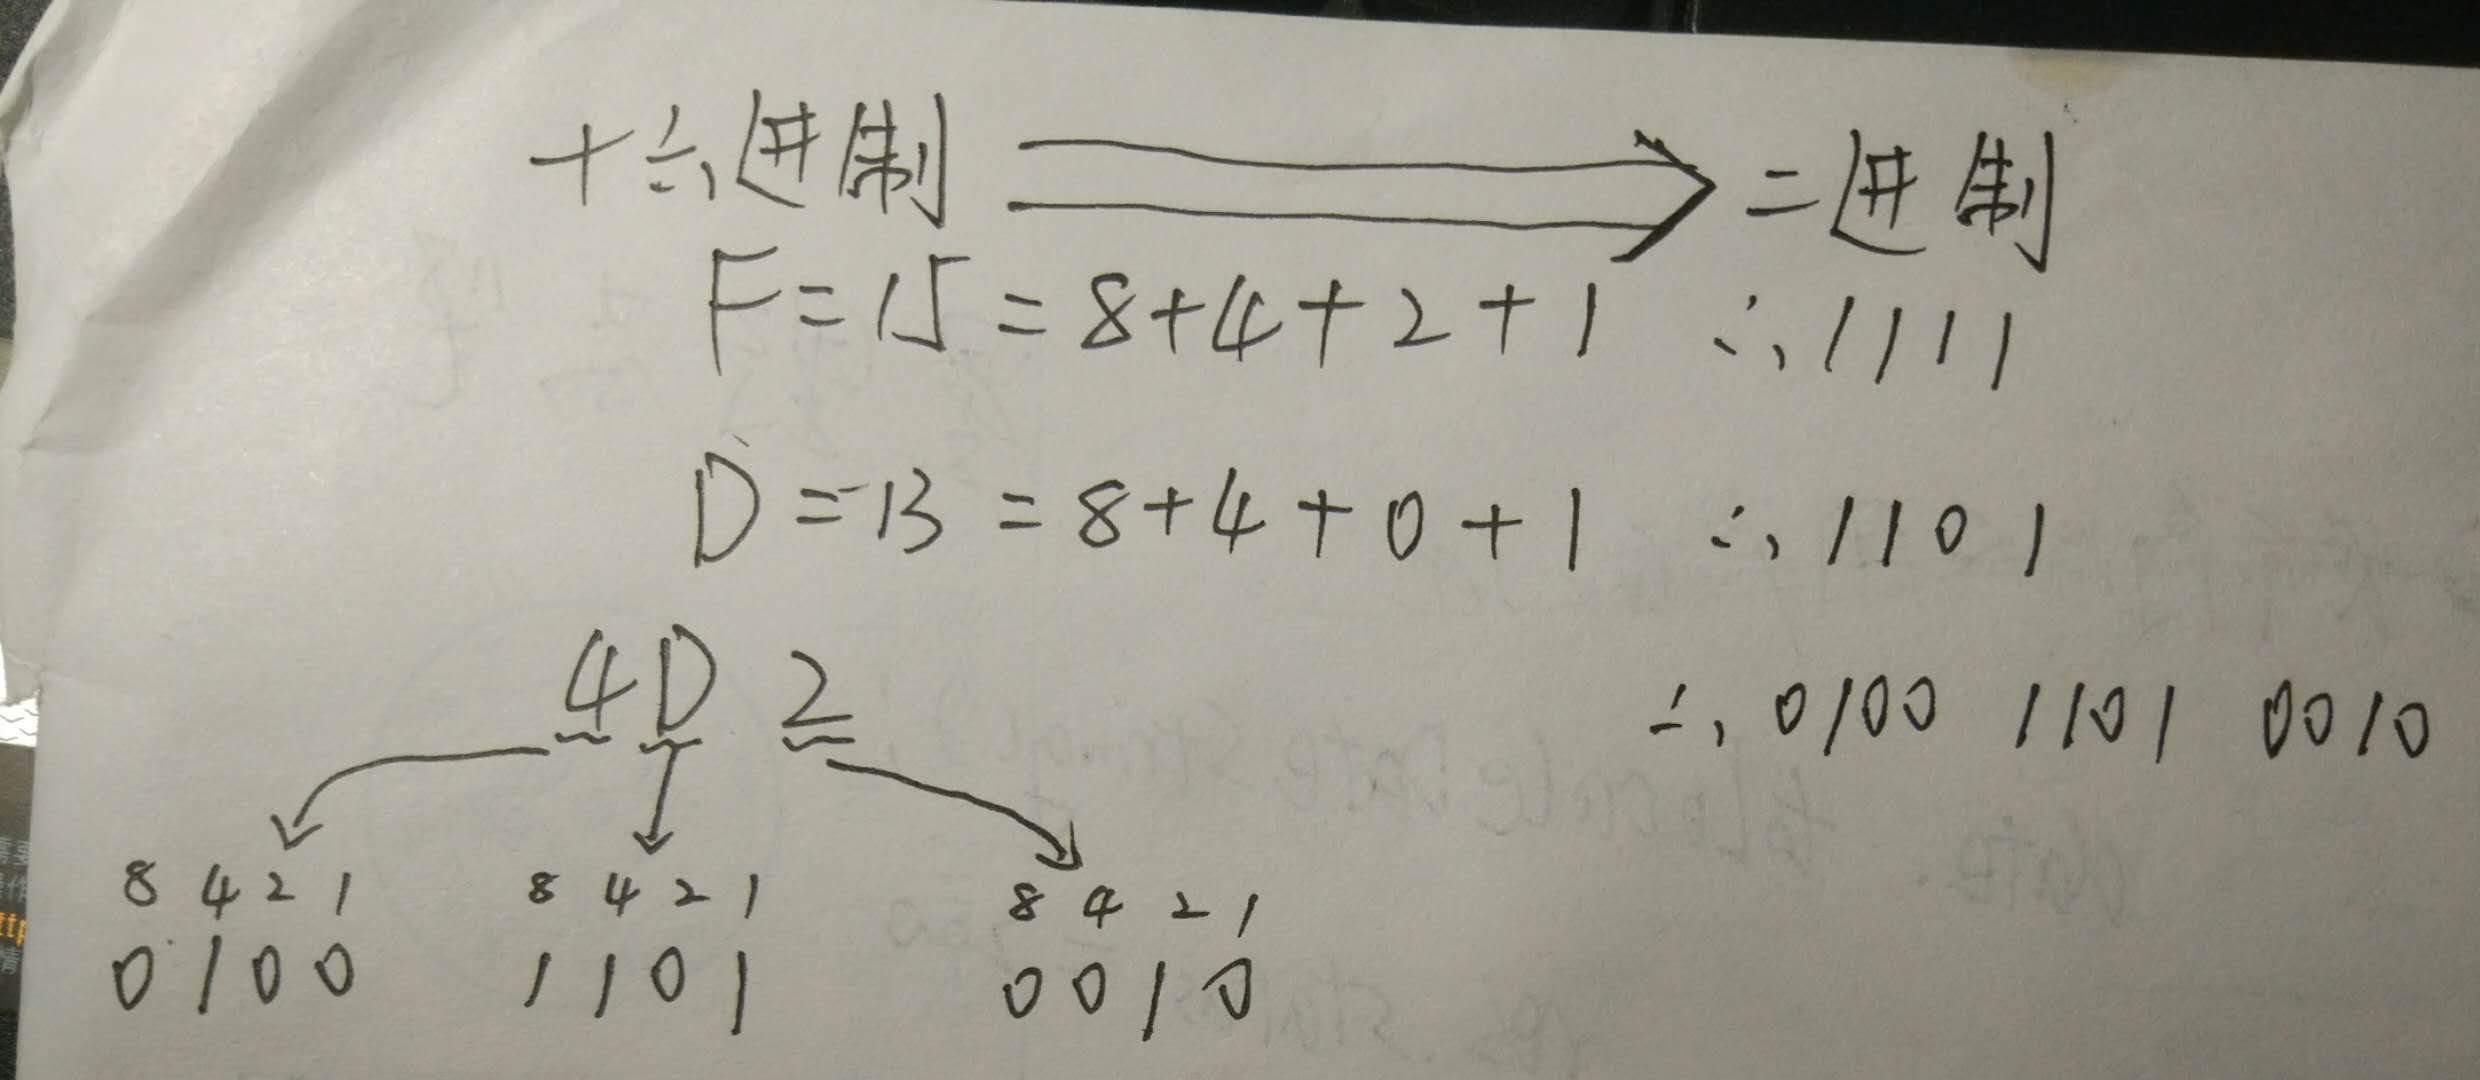 十六进制 二进制
F=15=8+4+2+1 ∴1111
D=13=8+4+0+1 ∴1101
4D2 ∴0100 1101 0010
8421 8421 8421
0100 1101 0010